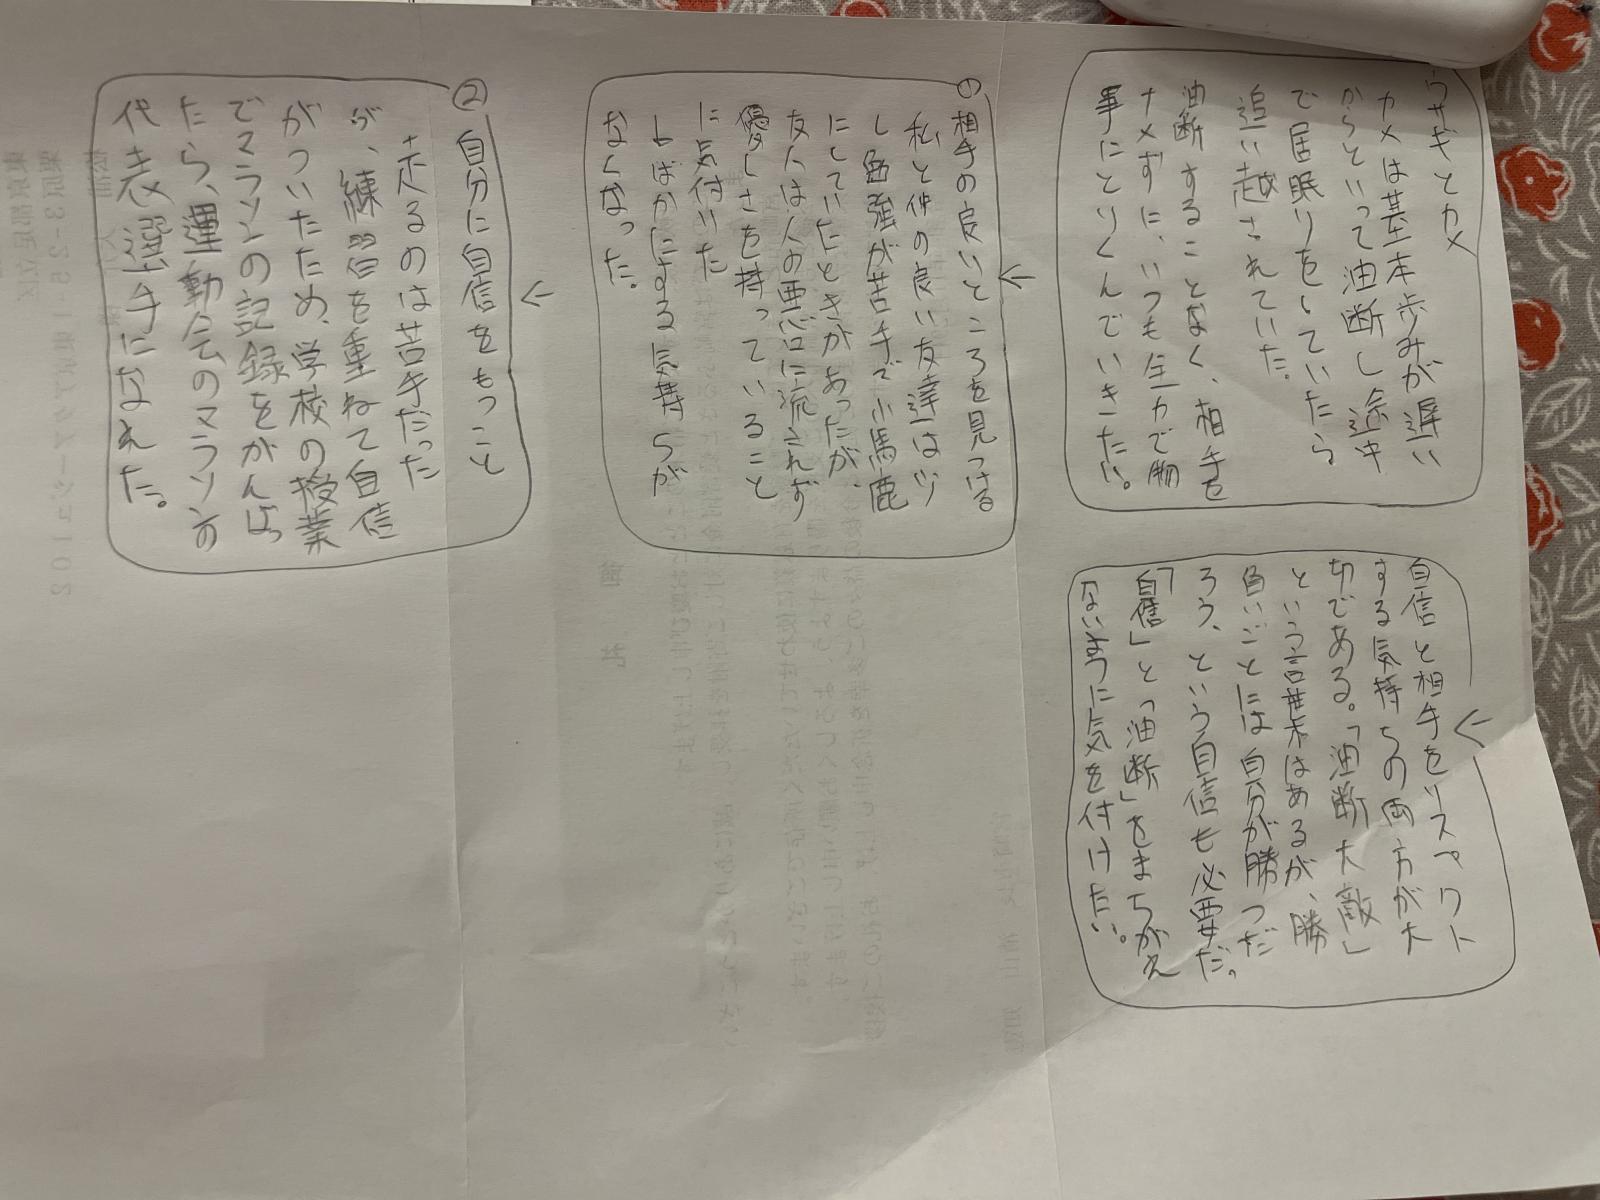 ウサギとカメ
カメは基本歩みが遅い
からといって油断し途中
で居眠りをしていたら
追い越されていた。
油断することなく、相手を
ナメずに、いつも全力で物
事にとりくんでいきたい。
① 相手の良いところを見つける
私と仲の良い友達は少
し勉強が苦手で小馬鹿
にしていたときがあったが、
友人は人の悪口に流されず
優しさを持っていること
に気付いた
しばかにする気持ちが
なくなった。
② 自分に自信をもつこと
走るのは苦手だった
が、練習を重ねて自信
がついたため、学校の授業
でマラソンの記録をがんばっ
たら、運動会のマラソンの
代表選手になれた。
自信と相手をリスペクト
する気持ちの両方が大
切である。「油断大敵」
という言葉はあるが、勝
負ごとには自分が勝つだ
ろう、という自信も必要だ。
「自信」と「油断」をまちがえ
ないように気を付けたい。